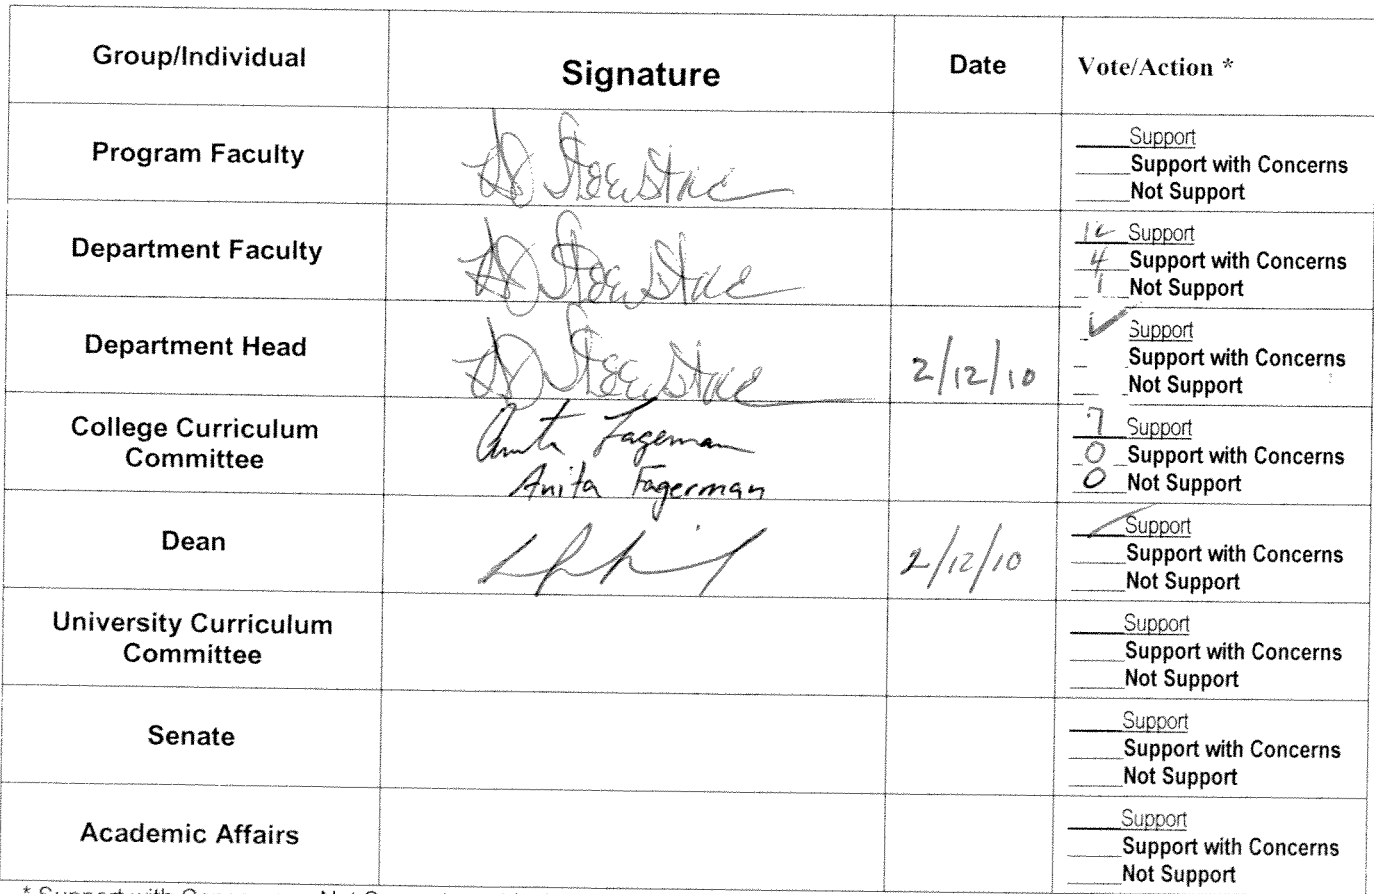 Group/Individual Signature Date Vote/Action *
Program Faculty
____Support
____Support with Concerns
____Not Support
Department Faculty
Support
4 Support with Concerns
1 Not Support
Department Head 2/12/10
✓ Support
__ Support with Concerns
__ Not Support
College Curriculum
Committee
Anita Fagerman
Anita Fagerman
7 Support
0 Support with Concerns
0 Not Support
Dean 2/12/10
✓ Support
____Support with Concerns
____Not Support
University Curriculum
Committee
____Support
____Support with Concerns
____Not Support
Senate
____Support
____Support with Concerns
____Not Support
Academic Affairs
____Support
____Support with Concerns
____Not Support